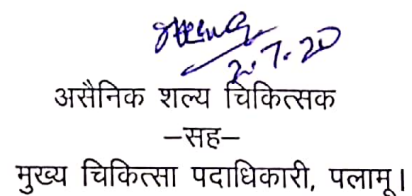 2.7.20
असैनिक शल्य चिकित्सक
–सह–
मुख्य चिकित्सा पदाधिकारी, पलामू।